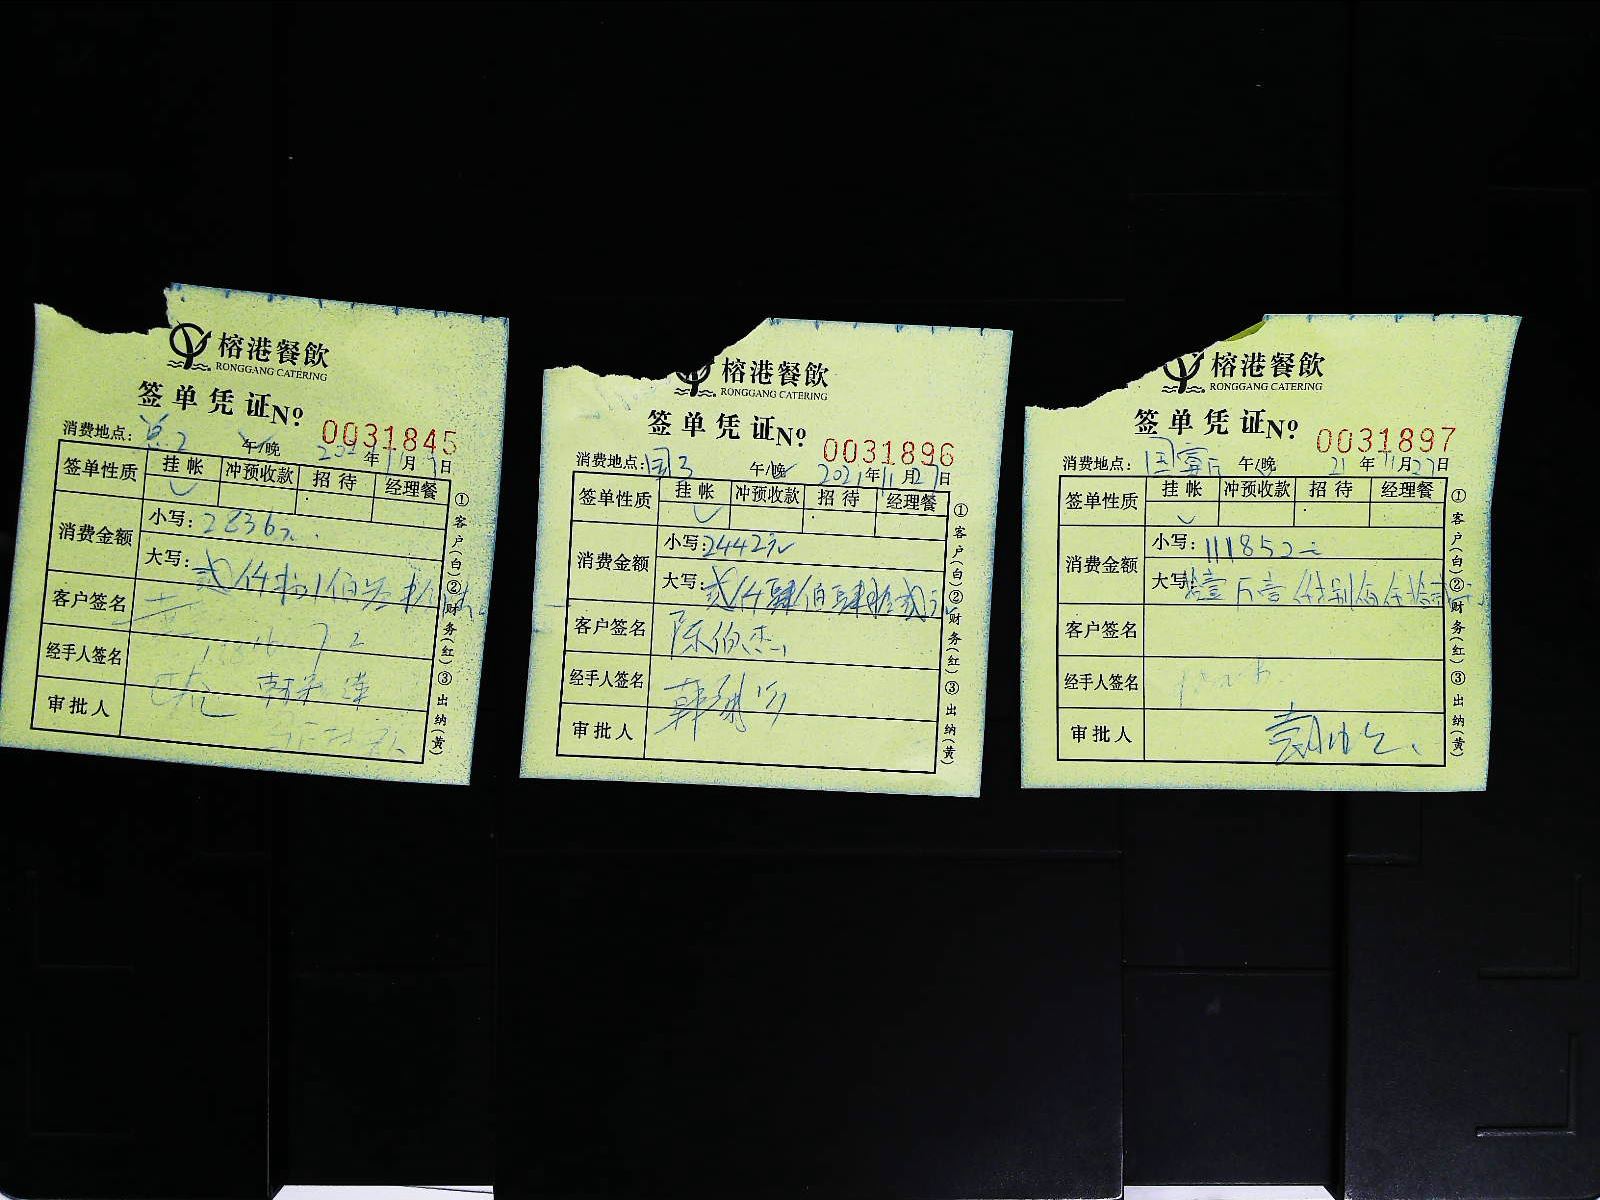 榕港餐飲
RONGGANG CATERING
签单凭证 Nº 0031845
消费地点: 午/晚 年11月9日
签单性质 挂帐 冲预收款 招待 经理餐
消费金额 小写: 2836元
大写: 贰仟捌佰叁拾
客户签名
经手人签名
审批人
①客户(白)②财务(红)③出纳(黄)
榕港餐飲
RONGGANG CATERING
签单凭证 Nº 0031896
消费地点: 国3 午/晚 2021年11月27日
签单性质 挂帐 冲预收款 招待 经理餐
消费金额 小写: 2442元
大写: 贰仟肆佰肆拾贰元
客户签名 陈伯杰
经手人签名 韩
审批人
①客户(白)②财务(红)③出纳(黄)
榕港餐飲
RONGGANG CATERING
签单凭证 Nº 0031897
消费地点: 国宴厅 午/晚 21年11月27日
签单性质 挂帐 冲预收款 招待 经理餐
消费金额 小写: 11852元
大写: 壹万壹仟捌佰伍拾贰
客户签名
经手人签名
审批人
①客户(白)②财务(红)③出纳(黄)